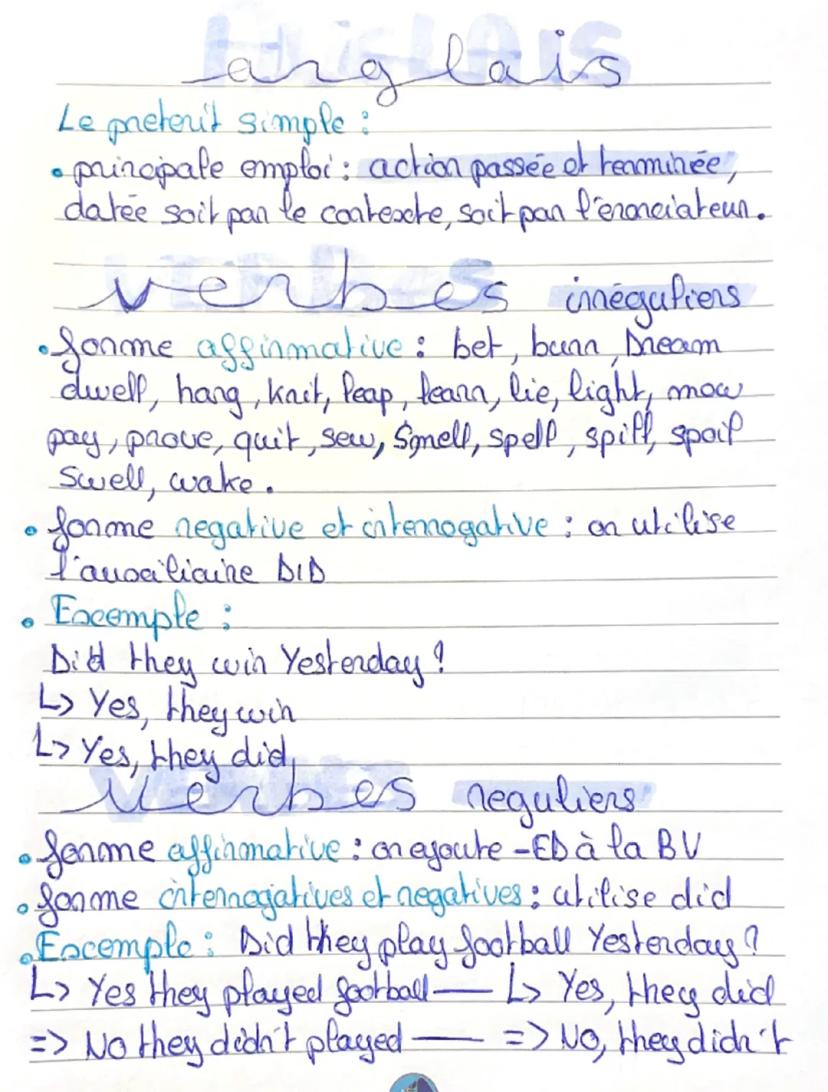 anglais
Le preterit simple :
• principale emploi : action passée et terminée,
datée soit par le contexte, soit par l'énonciateur.
verbes irréguliers
• forme affirmative : bet, burn, Dream
dwell, hang, knit, leap, learn, lie, light, mow
pay, prove, quit, sew, Smell, spell, spill, spoil
swell, wake.
• forme negative et interrogative : on utilise
l'auxiliaire DID
• Exemple :
Did they win Yesterday ?
↳ Yes, they win
↳ Yes, they did,
verbes reguliers
• forme affirmative : on ajoute -ED à la BV
• forme interrogatives et negatives : utilise did
• Exemple : Did they play football Yesterday ?
↳ Yes they played football — ↳ Yes, they did
=> No they didn't played — => No, they didn't